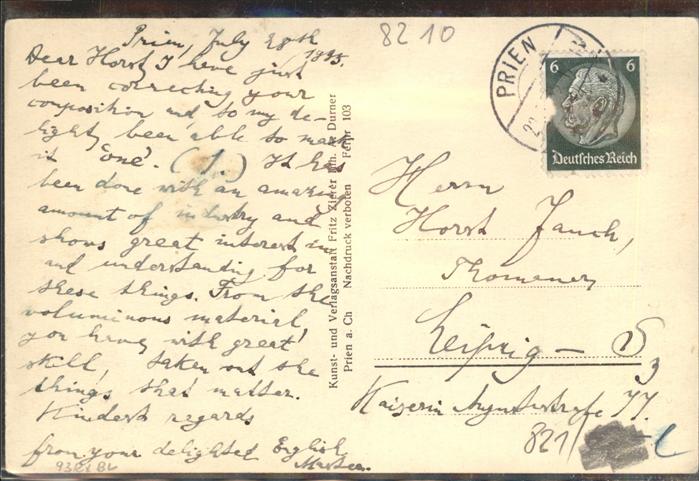 Prien, July 28th
1935.
Dear Horst, I have just
been correcting your
composition and to my de-
light, been able to mark
it 'one'. (1.) It has
been done with an amazing
amount of industry and
shows great interest in
and understanding for
these things. From the
voluminous material,
you have, with great
skill, taken out the
things that matter.
Kindest regards
from your delighted English
Master.
9312x BL
8210
PRIEN
6 6
Deutsches Reich
Kunst- und Verlagsanstalt Fritz Zierer Inh. Durner
Prien a. Ch Nachdruck verboten Fernr 103
Herrn
Horst Jauch,
Thomaner
Leipzig - S 3
Kaiserin Augustastraße 77.
821